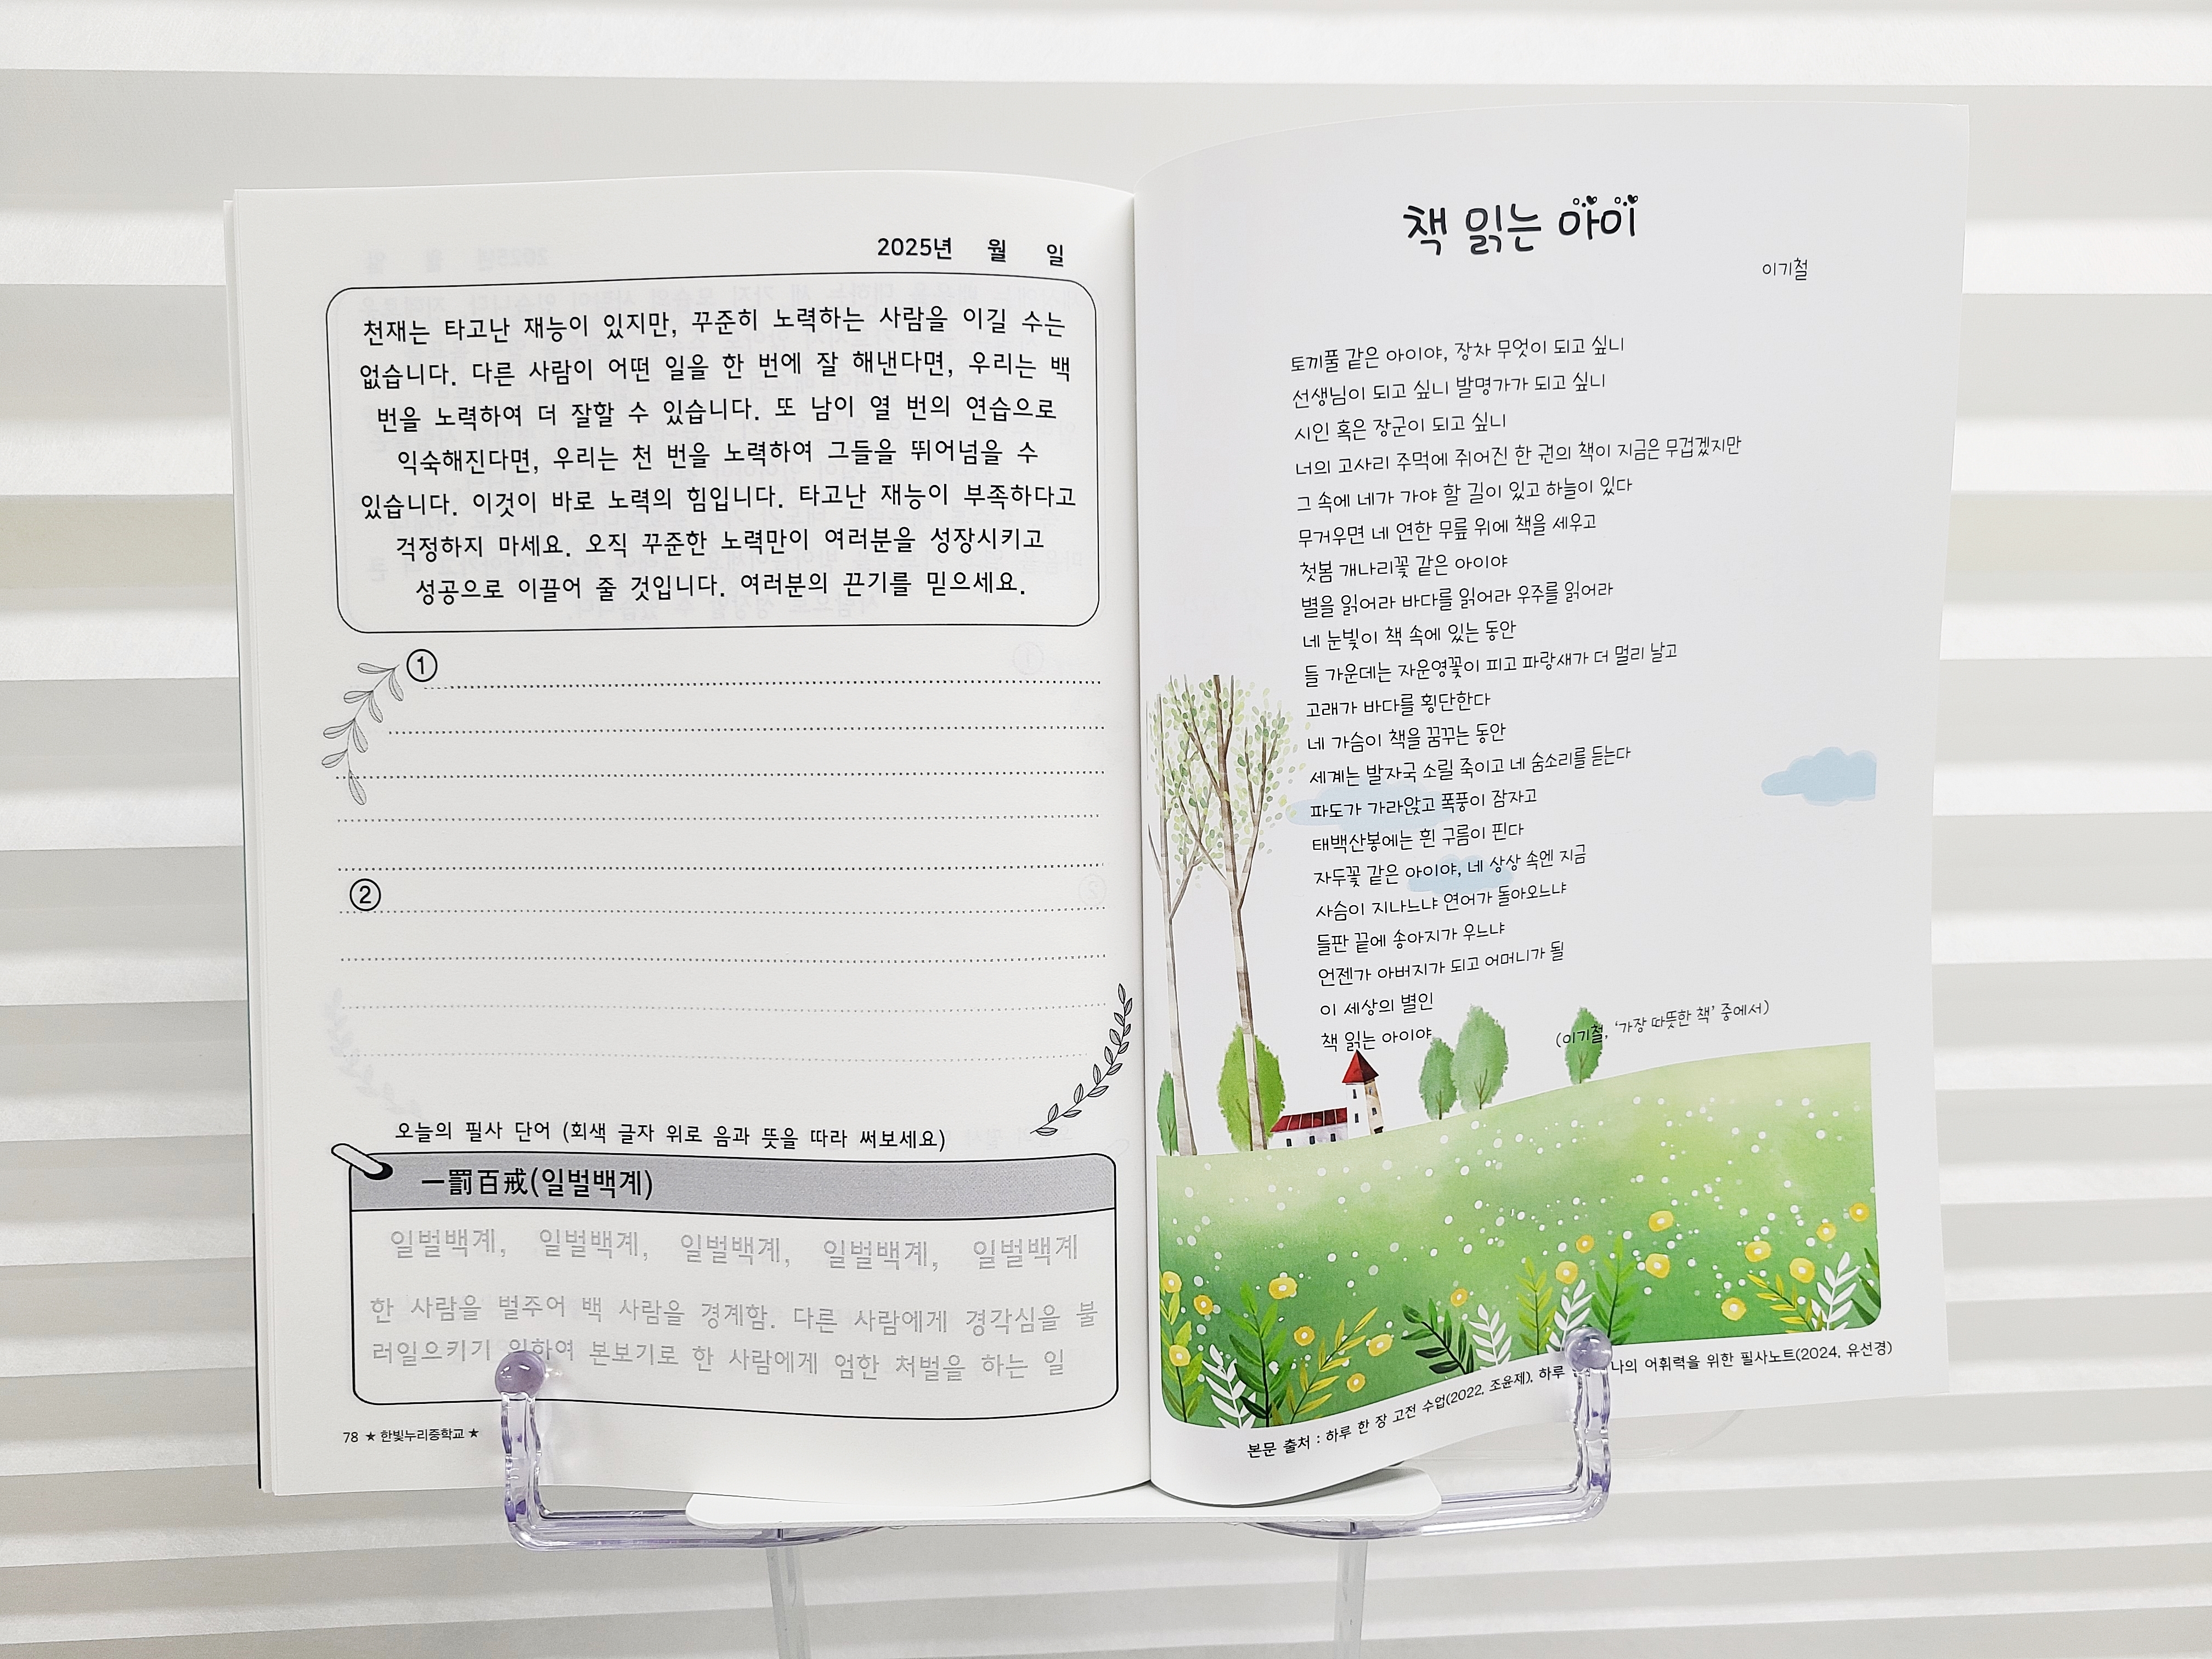 2025년 월 일
천재는 타고난 재능이 있지만, 꾸준히 노력하는 사람을 이길 수는
없습니다. 다른 사람이 어떤 일을 한 번에 잘 해낸다면, 우리는 백
번을 노력하여 더 잘할 수 있습니다. 또 남이 열 번의 연습으로
익숙해진다면, 우리는 천 번을 노력하여 그들을 뛰어넘을 수
있습니다. 이것이 바로 노력의 힘입니다. 타고난 재능이 부족하다고
걱정하지 마세요. 오직 꾸준한 노력만이 여러분을 성장시키고
성공으로 이끌어 줄 것입니다. 여러분의 끈기를 믿으세요.
①
②
오늘의 필사 단어 (회색 글자 위로 음과 뜻을 따라 써보세요)
一罰百戒(일벌백계)
일벌백계, 일벌백계, 일벌백계, 일벌백계, 일벌백계
한 사람을 벌주어 백 사람을 경계함. 다른 사람에게 경각심을 불
러일으키기 위하여 본보기로 한 사람에게 엄한 처벌을 하는 일
78 ★ 한빛누리중학교 ★
책 읽는 아이
이기철
토끼풀 같은 아이야, 장차 무엇이 되고 싶니
선생님이 되고 싶니 발명가가 되고 싶니
시인 혹은 장군이 되고 싶니
너의 고사리 주먹에 쥐어진 한 권의 책이 지금은 무겁겠지만
그 속에 네가 가야 할 길이 있고 하늘이 있다
무거우면 네 연한 무릎 위에 책을 세우고
첫봄 개나리꽃 같은 아이야
별을 읽어라 바다를 읽어라 우주를 읽어라
네 눈빛이 책 속에 있는 동안
들 가운데는 자운영꽃이 피고 파랑새가 더 멀리 날고
고래가 바다를 횡단한다
네 가슴이 책을 꿈꾸는 동안
세계는 발자국 소릴 죽이고 네 숨소리를 듣는다
파도가 가라앉고 폭풍이 잠자고
태백산봉에는 흰 구름이 핀다
자두꽃 같은 아이야, 네 상상 속엔 지금
사슴이 지나느냐 연어가 돌아오느냐
들판 끝에 송아지가 우느냐
언젠가 아버지가 되고 어머니가 될
이 세상의 별인
책 읽는 아이야
(이기철, '가장 따뜻한 책' 중에서)
본문 출처 : 하루 한 장 고전 수업(2022, 조윤제), 하루 나의 어휘력을 위한 필사노트(2024, 유선경)